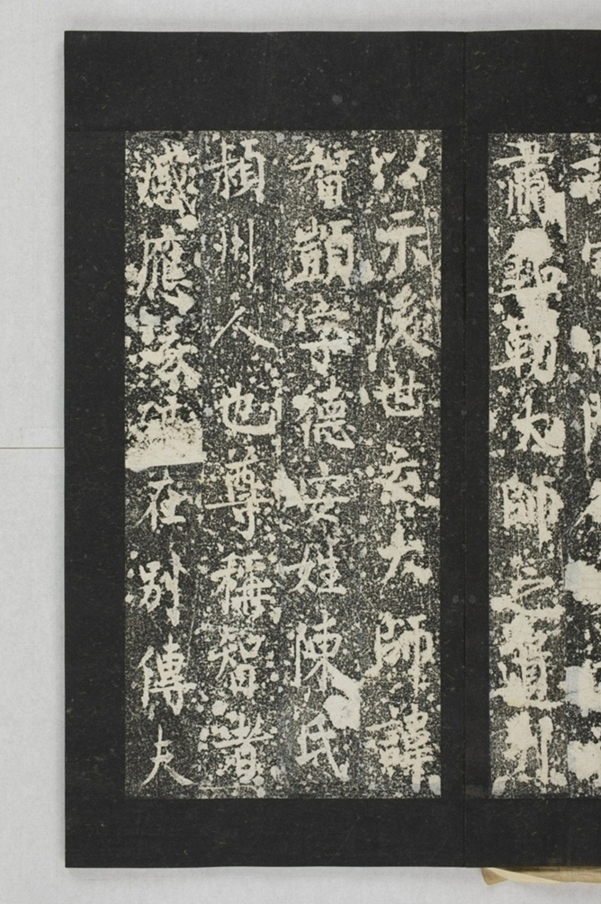 肅聖勒大師之遺烈
以示後世云大師諱
智顗字德安姓陳氏
潁川人也尊稱智者
感應在別傳夫